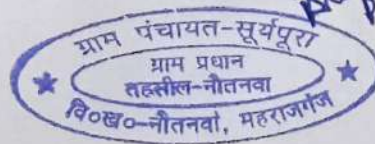 ग्राम पंचायत-सूर्यपुरा
ग्राम प्रधान
तहसील-नौतनवा
वि०ख०-नौतनवां, महराजगंज